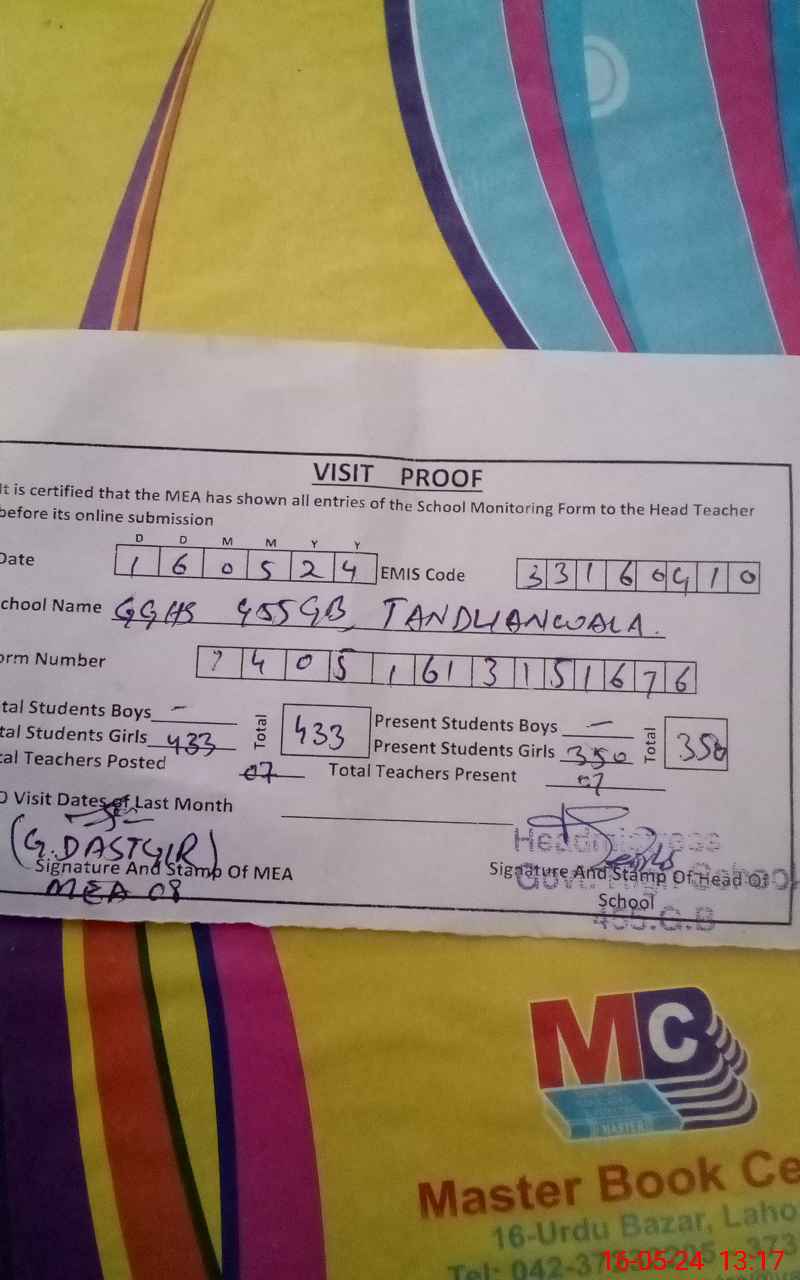 VISIT PROOF
It is certified that the MEA has shown all entries of the School Monitoring Form to the Head Teacher
before its online submission
D D M M Y Y
Date 1 6 0 5 2 4 EMIS Code 3 3 1 6 0 4 1 0
chool Name GGHS 455 GB, TANDLIANWALA.
orm Number 7 4 0 5 1 6 1 3 1 5 1 6 7 6
tal Students Boys - Total 433 Present Students Boys - Total 350
tal Students Girls 433 Present Students Girls 350
tal Teachers Posted 07 Total Teachers Present 07
O Visit Dates of Last Month
(G. DASTGIR)
Signature And Stamp Of MEA
MEA 08
Headmistress
Signature And Stamp Of Head Of
School
Govt. High School
455.G.B
MC
MASTER
Master Book Ce
16-Urdu Bazar, Laho
Tel: 042-37
16-05-24 13:17